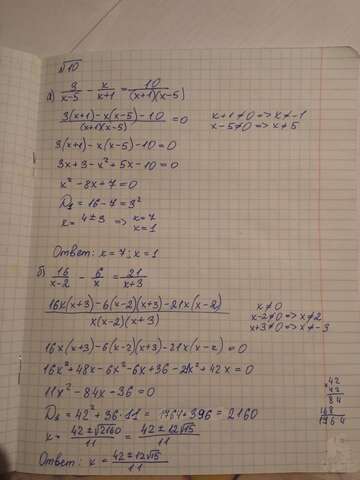 №10
а) 3/(x-5) - x/(x+1) = 10/((x+1)(x-5))
(3(x+1)-x(x-5)-10)/((x+1)(x-5)) = 0
x+1≠0 => x≠-1
x-5≠0 => x≠5
3(x+1)-x(x-5)-10=0
3x+3-x²+5x-10=0
x²-8x+7=0
D₁=16-7=3²
x=4±3 => x=7
x=1
Ответ: x=7; x=1
б) 16/(x-2) - 6/x = 21/(x+3)
(16x(x+3)-6(x-2)(x+3)-21x(x-2))/(x(x-2)(x+3))
x≠0
x-2≠0 => x≠2
x+3≠0 => x≠-3
16x(x+3)-6(x-2)(x+3)-21x(x-2)=0
16x²+48x-6x²-6x+36-21x²+42x=0
11x²-84x-36=0
D₁=42²+36·11=1764+396=2160
x=(42±√2160)/11=(42±12√15)/11
Ответ: x=(42±12√15)/11
42
42
84
168
1764